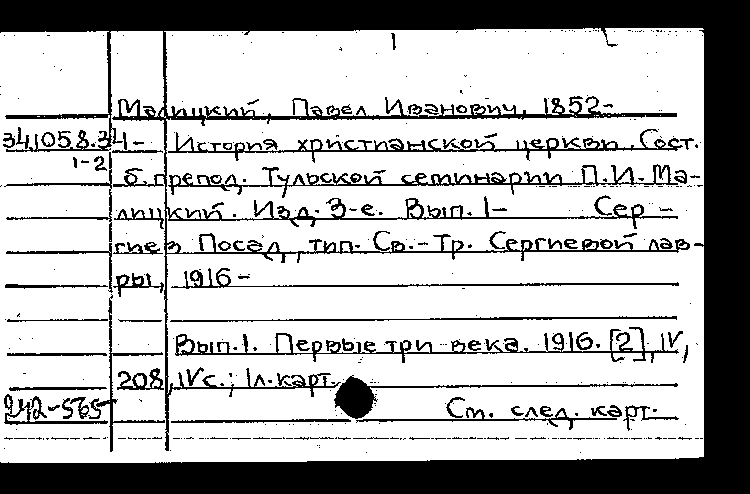 Малицкий, Павел Иванович, 1852-
34.058.34- История христианской церкви. Сост.
1-2 б. препод. Тульской семинарии П.И. Ма-
лицкий. Изд. 3-е. Вып. 1- Сер-
гиев Посад, тип. Св.-Тр. Сергиевой лав-
ры, 1916-
Вып. 1. Первые три века. 1916. [2], IV,
208, IV с.; 1 л. карт.
242-565 См. след. карт.